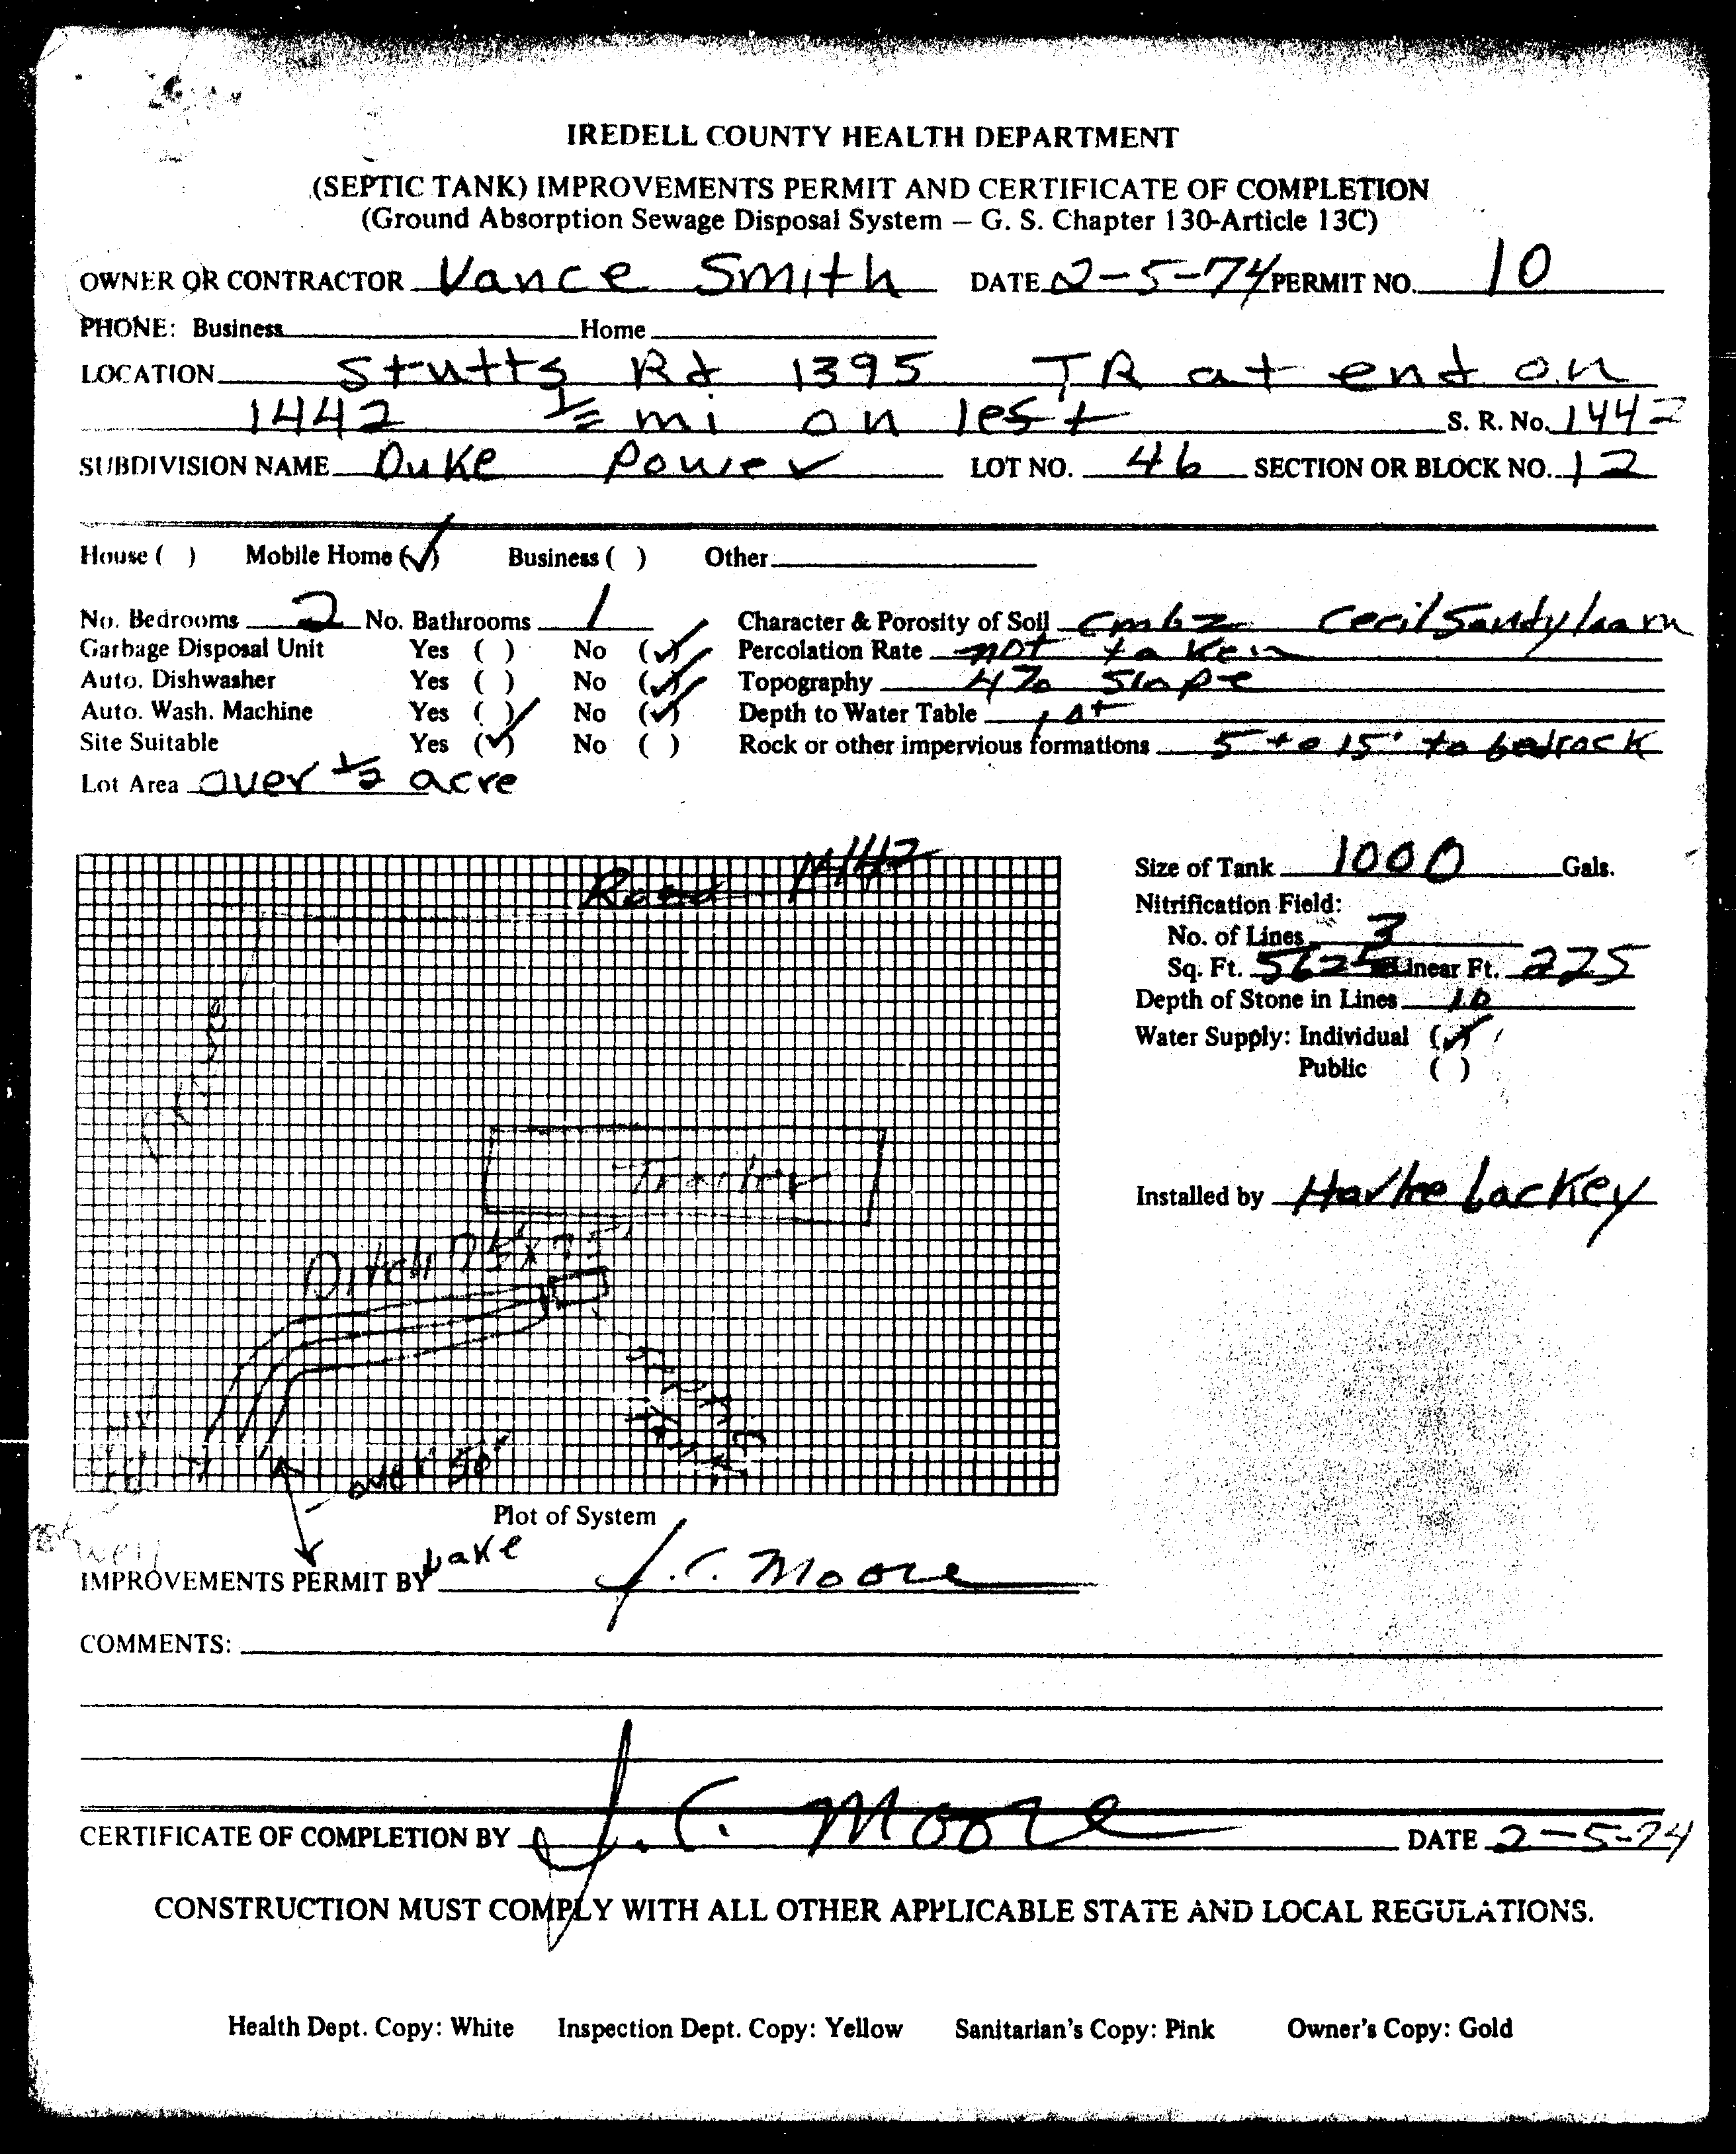 IREDELL COUNTY HEALTH DEPARTMENT
(SEPTIC TANK) IMPROVEMENTS PERMIT AND CERTIFICATE OF COMPLETION
(Ground Absorption Sewage Disposal System — G. S. Chapter 130-Article 13C)
OWNER OR CONTRACTOR Vance Smith DATE 2-5-74 PERMIT NO. 10
PHONE: Business Home
LOCATION Stutts Rd 1395 TR at end on
1442 ½ mi on left S. R. No. 1442
SUBDIVISION NAME Duke Power LOT NO. 46 SECTION OR BLOCK NO. 12
House ( ) Mobile Home (✓) Business ( ) Other
No. Bedrooms 2 No. Bathrooms 1 Character & Porosity of Soil Cecil Sandy loam
Garbage Disposal Unit Yes ( ) No (✓) Percolation Rate not taken
Auto. Dishwasher Yes ( ) No (✓) Topography 4% slope
Auto. Wash. Machine Yes ( ) No (✓) Depth to Water Table
Site Suitable Yes (✓) No ( ) Rock or other impervious formations 5 to 15' to bedrock
Lot Area over ½ acre
Road 1442
Size of Tank 1000 Gals.
Nitrification Field:
No. of Lines 3
Sq. Ft. 562.5 Linear Ft. 225
Depth of Stone in Lines 10
Water Supply: Individual (✓)
Public ( )
Trailer
Installed by Lackey
Ditch 75' x
over 50'
Plot of System
well
Lake
IMPROVEMENTS PERMIT BY J. C. Moore
COMMENTS:
CERTIFICATE OF COMPLETION BY J. C. Moore DATE 2-5-74
CONSTRUCTION MUST COMPLY WITH ALL OTHER APPLICABLE STATE AND LOCAL REGULATIONS.
Health Dept. Copy: White Inspection Dept. Copy: Yellow Sanitarian's Copy: Pink Owner's Copy: Gold